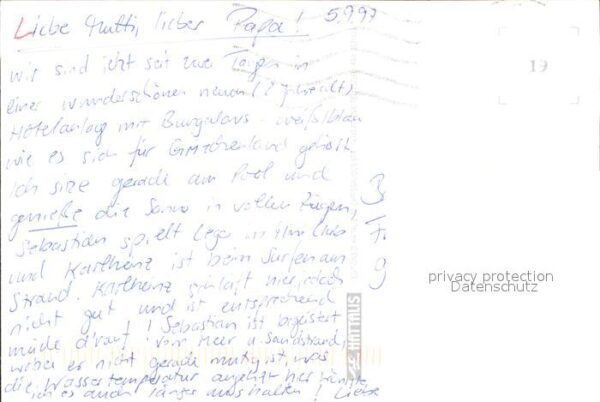 Liebe Mutti, lieber Papa! 5.9.97
19
wir sind jetzt seit zwei Tagen in
einer wunderschönen neuen (2 geheizt),
Hotelanlag mit Bungalows - weiß/blau
wie es sich für Griechenland gehört.
Ich sitze gerade am Pool und
genieße die Sonne in vollen Zügen,
Sebastian spielt Lego im
und Karlheinz ist beim Surfen am
Strand. Karlheinz schläft hier jedoch
nicht gut und ist entsprechend
müde d'rauf! Sebastian ist begeistert
vom Meer u. Sandstrand,
wobei er nicht gerade mutig ist, was
die Wassertemperatur angeht. hier könnte
ich es auch länger aushalten! Liebe
3
7.
9
HATTMUS
privacy protection
Datenschutz